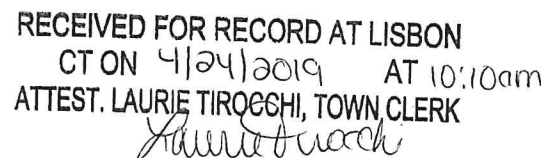 RECEIVED FOR RECORD AT LISBON
CT ON 4/24/2019 AT 10:10am
ATTEST. LAURIE TIROCCHI, TOWN CLERK
Laurie Tirocchi